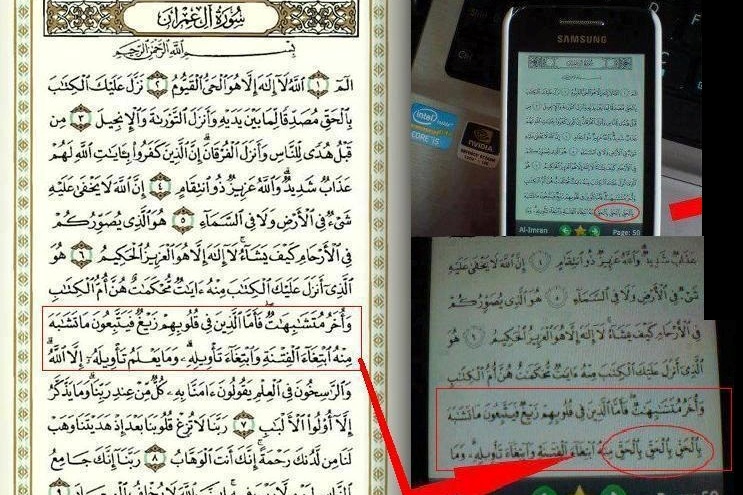 سُورَةُ آلِ عِمْرَانَ
بِسْمِ اللَّهِ الرَّحْمَٰنِ الرَّحِيمِ
الٓمٓ ١ اللَّهُ لَآ إِلَٰهَ إِلَّا هُوَ الْحَيُّ الْقَيُّومُ ٢ نَزَّلَ عَلَيْكَ الْكِتَٰبَ
بِالْحَقِّ مُصَدِّقًا لِّمَا بَيْنَ يَدَيْهِ وَأَنزَلَ التَّوْرَىٰةَ وَالْإِنجِيلَ ٣ مِن
قَبْلُ هُدًى لِّلنَّاسِ وَأَنزَلَ الْفُرْقَانَ ۗ إِنَّ الَّذِينَ كَفَرُوا بِـَٔايَٰتِ اللَّهِ لَهُمْ
عَذَابٌ شَدِيدٌ ۗ وَاللَّهُ عَزِيزٌ ذُو انتِقَامٍ ٤ إِنَّ اللَّهَ لَا يَخْفَىٰ عَلَيْهِ
شَيْءٌ فِي الْأَرْضِ وَلَا فِي السَّمَآءِ ٥ هُوَ الَّذِي يُصَوِّرُكُمْ
فِي الْأَرْحَامِ كَيْفَ يَشَآءُ ۚ لَآ إِلَٰهَ إِلَّا هُوَ الْعَزِيزُ الْحَكِيمُ ٦ هُوَ
الَّذِيٓ أَنزَلَ عَلَيْكَ الْكِتَٰبَ مِنْهُ ءَايَٰتٌ مُّحْكَمَٰتٌ هُنَّ أُمُّ الْكِتَٰبِ
وَأُخَرُ مُتَشَٰبِهَٰتٌ ۖ فَأَمَّا الَّذِينَ فِي قُلُوبِهِمْ زَيْغٌ فَيَتَّبِعُونَ مَا تَشَٰبَهَ
مِنْهُ ابْتِغَآءَ الْفِتْنَةِ وَابْتِغَآءَ تَأْوِيلِهِ ۗ وَمَا يَعْلَمُ تَأْوِيلَهُ إِلَّا اللَّهُ ۗ
وَالرَّٰسِخُونَ فِي الْعِلْمِ يَقُولُونَ ءَامَنَّا بِهِ كُلٌّ مِّنْ عِندِ رَبِّنَا ۗ وَمَا يَذَّكَّرُ
إِلَّآ أُولُوا الْأَلْبَٰبِ ٧ رَبَّنَا لَا تُزِغْ قُلُوبَنَا بَعْدَ إِذْ هَدَيْتَنَا وَهَبْ
لَنَا مِن لَّدُنكَ رَحْمَةً ۚ إِنَّكَ أَنتَ الْوَهَّابُ ٨ رَبَّنَآ إِنَّكَ جَامِعُ
SAMSUNG
intel
CORE i5
NVIDIA
Al-Imran
Page: 50
عَذَابٌ شَدِيدٌ ۗ وَاللَّهُ عَزِيزٌ ذُو انتِقَامٍ ٤ إِنَّ اللَّهَ لَا يَخْفَىٰ عَلَيْهِ
شَيْءٌ فِي الْأَرْضِ وَلَا فِي السَّمَآءِ ٥ هُوَ الَّذِي يُصَوِّرُكُمْ
فِي الْأَرْحَامِ كَيْفَ يَشَآءُ ۚ لَآ إِلَٰهَ إِلَّا هُوَ الْعَزِيزُ الْحَكِيمُ ٦ هُوَ
الَّذِيٓ أَنزَلَ عَلَيْكَ الْكِتَٰبَ مِنْهُ ءَايَٰتٌ مُّحْكَمَٰتٌ هُنَّ أُمُّ الْكِتَٰبِ
وَأُخَرُ مُتَشَٰبِهَٰتٌ ۖ فَأَمَّا الَّذِينَ فِي قُلُوبِهِمْ زَيْغٌ فَيَتَّبِعُونَ مَا تَشَٰبَهَ
بِالْحَقِّ بِالْحَقِّ بِالْحَقِّ مِنْهُ ابْتِغَآءَ الْفِتْنَةِ وَابْتِغَآءَ تَأْوِيلِهِ ۗ وَمَا
50